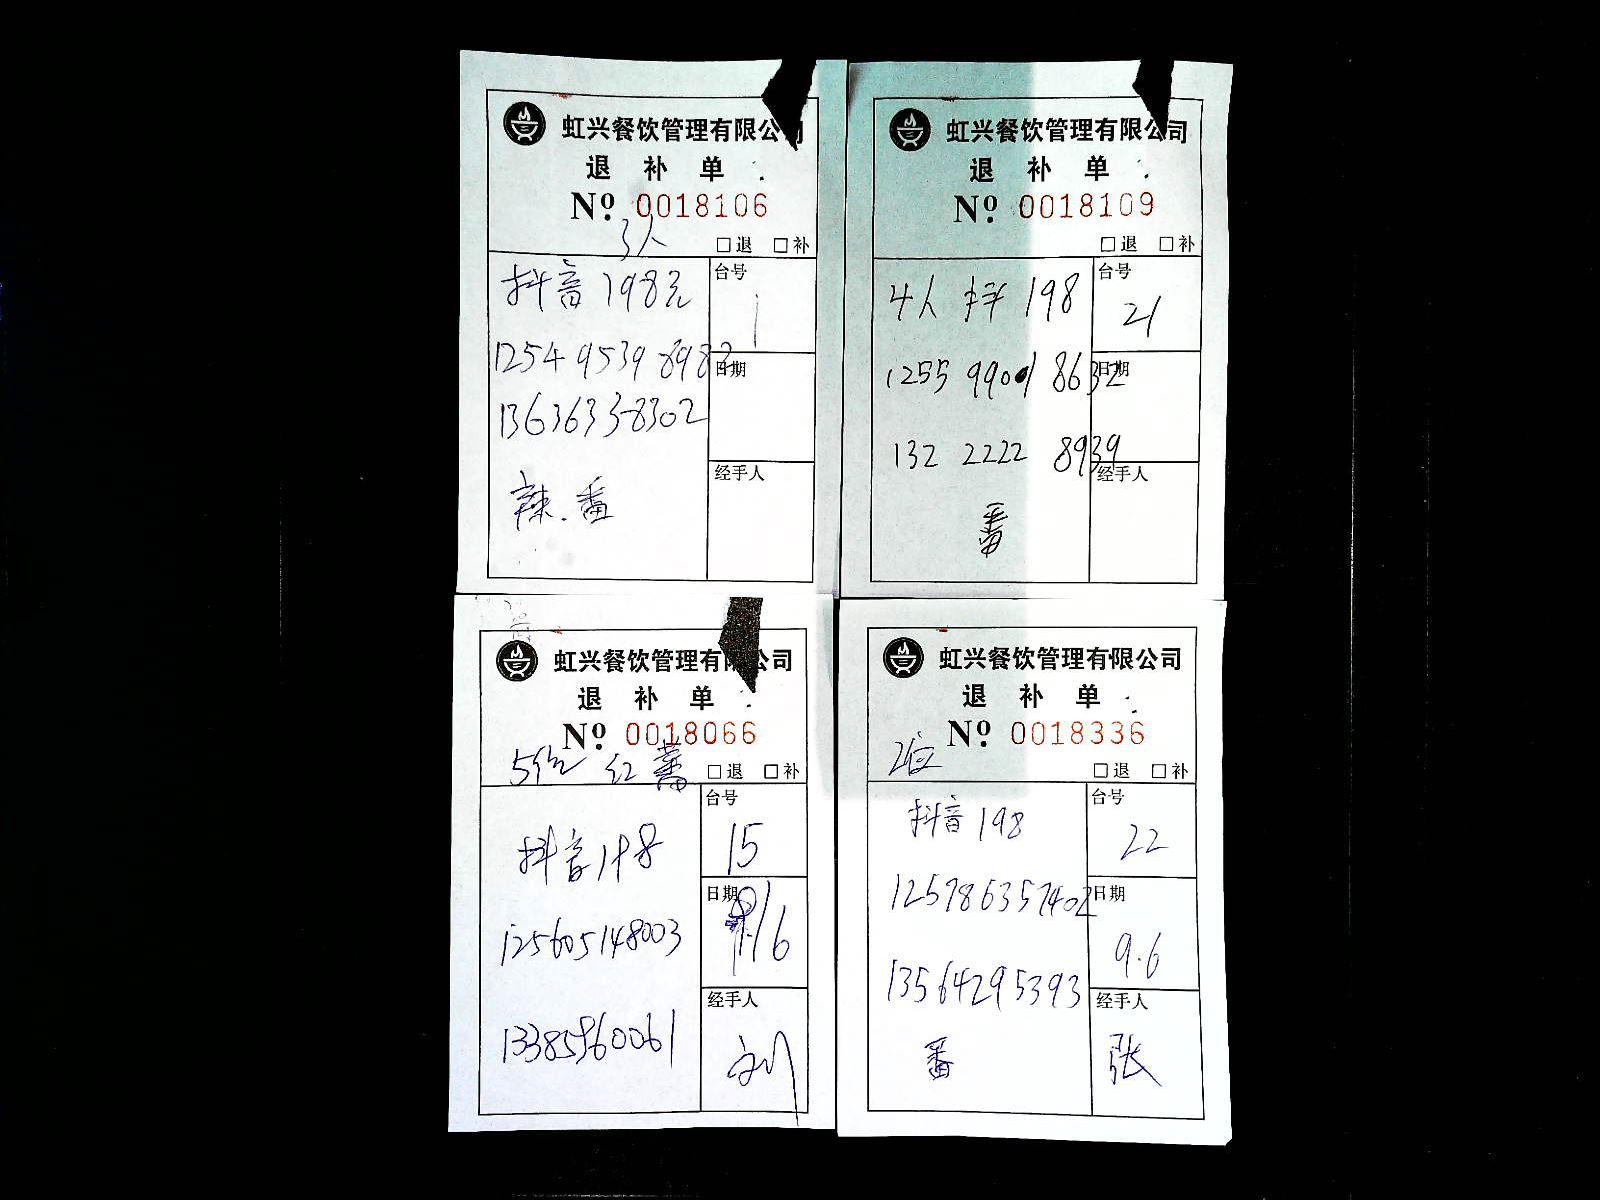 虹兴餐饮管理有限公司
退 补 单
Nº. 0018106
3人
□退 □补
抖音198元
台号
1
1254 9539 8982
日期
13636338302
经手人
辣.番
虹兴餐饮管理有限公司
退 补 单
Nº. 0018109
□退 □补
4人 抖 198
台号
21
1255 9901 8632
日期
132 2222 8939
经手人
番
虹兴餐饮管理有限公司
退 补 单
Nº. 0018066
5位 红 蕃
□退 □补
抖音198
台号
15
日期
125605148003
经手人
13385960061
刘
虹兴餐饮管理有限公司
退 补 单
Nº. 0018336
2位
□退 □补
抖音198
台号
22
125786357402
日期
9.6
13564295393
经手人
番
张